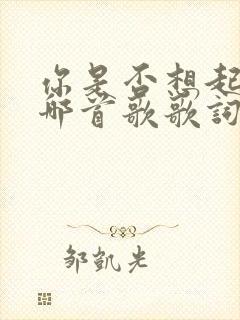 你是否想起
那首歌歌詞
邹凯光